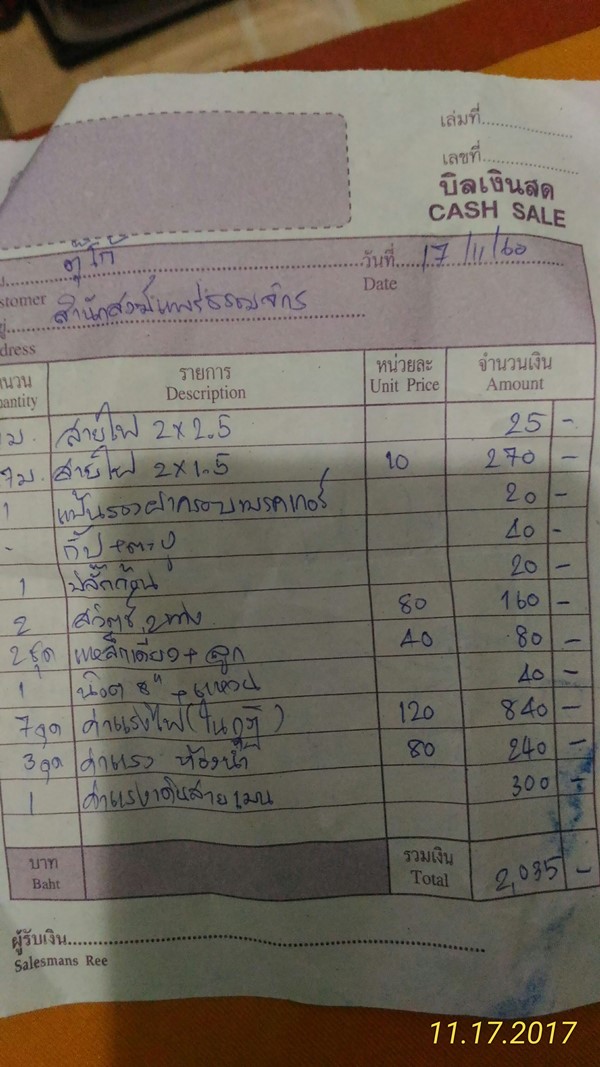 เล่มที่
เลขที่
บิลเงินสด
CASH SALE
ตุ๊โก้ วันที่ 17/11/60
stomer Date
สำนักสงฆ์แพร่ธรรมจักร
dress
นวน รายการ หน่วยละ จำนวนเงิน
antity Description Unit Price Amount
ม. สายไฟ 2x2.5 25 -
7ม. สายไฟ 2x1.5 10 270 -
1 แป้นรองฝาครอบเบรคเกอร์ 20 -
- กิ๊ป + ตะปู 40 -
1 ปลั๊กก้อน 20 -
2 สวิตซ์ 2 ทาง 80 160 -
2 ชุด เหล็กเดี่ยว + ลูก 40 80 -
1 น๊อต 8" + แหวน 40 -
7จุด ค่าแรงไฟ (ในกุฏิ) 120 840 -
3จุด ค่าแรง ห้องน้ำ 80 240 -
1 ค่าแรงเดินสายเมน 300 -
บาท รวมเงิน
Baht Total 2,035 -
ผู้รับเงิน
Salesmans Ree
11.17.2017